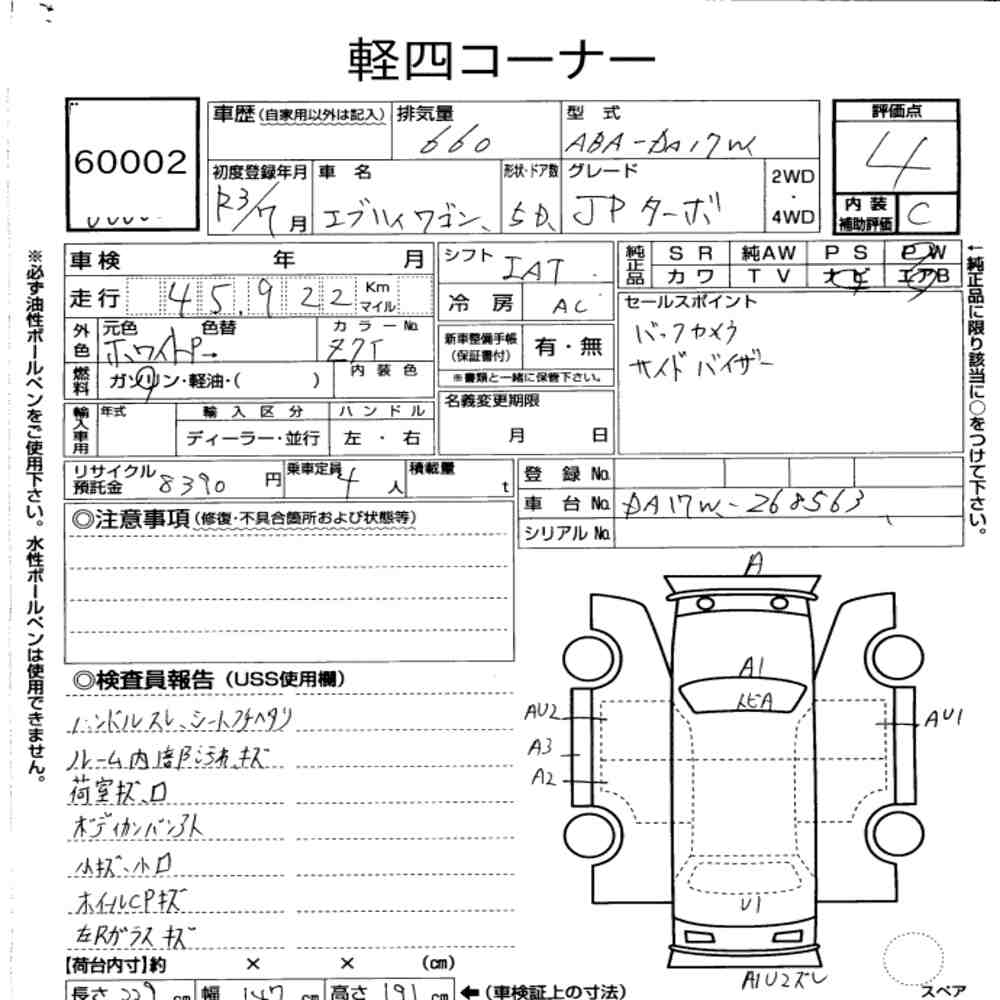 軽四コーナー
60002
車歴 (自家用以外は記入)
排気量
660
型式
ABA-DA17W
評価点
4
初度登録年月
R3/7月
車名
エブリイワゴン
形状・ドア数
5D
グレード
JPターボ
2WD
・
4WD
内装
補助評価
C
車検 年 月
シフト
IAT
純正品
SR 純AW PS PW
カワ TV ナビ エアB
走行 45,922 Km マイル
冷房 AC
セールスポイント
バックカメラ
サイドバイザー
外色
元色 色替
ホワイトP→
カラーNo.
Z7T
新車整備手帳
(保証書付)
有・無
※書類と一緒に保管下さい。
燃料
ガソリン・軽油・( )
内装色
名義変更期限
月 日
輸入車用
年式
輸入区分
ディーラー・並行
ハンドル
左・右
リサイクル
預託金
8390円
乗車定員
4人
積載量
t
登録No.
車台No. DA17W-268563
シリアルNo.
◎注意事項 (修復・不具合箇所および状態等)
◎検査員報告 (USS使用欄)
ハンドルスレ、シートフチヘタリ
ルーム内・内部汚れ、キズ
荷室キズ、凹
ボディカンバン跡
小キズ、小凹
ホイルCPキズ
左Rガラスキズ
【荷台内寸】約 × × (cm)
長さ 339 cm 幅 147 cm 高さ 191 cm ←(車検証上の寸法)
A
A1
トビA
AU2
A3
A2
AU1
U1
A1U2ズレ
スペア
※必ず油性ボールペンをご使用下さい。水性ボールペンは使用できません。
←純正品に限り該当に○をつけて下さい。